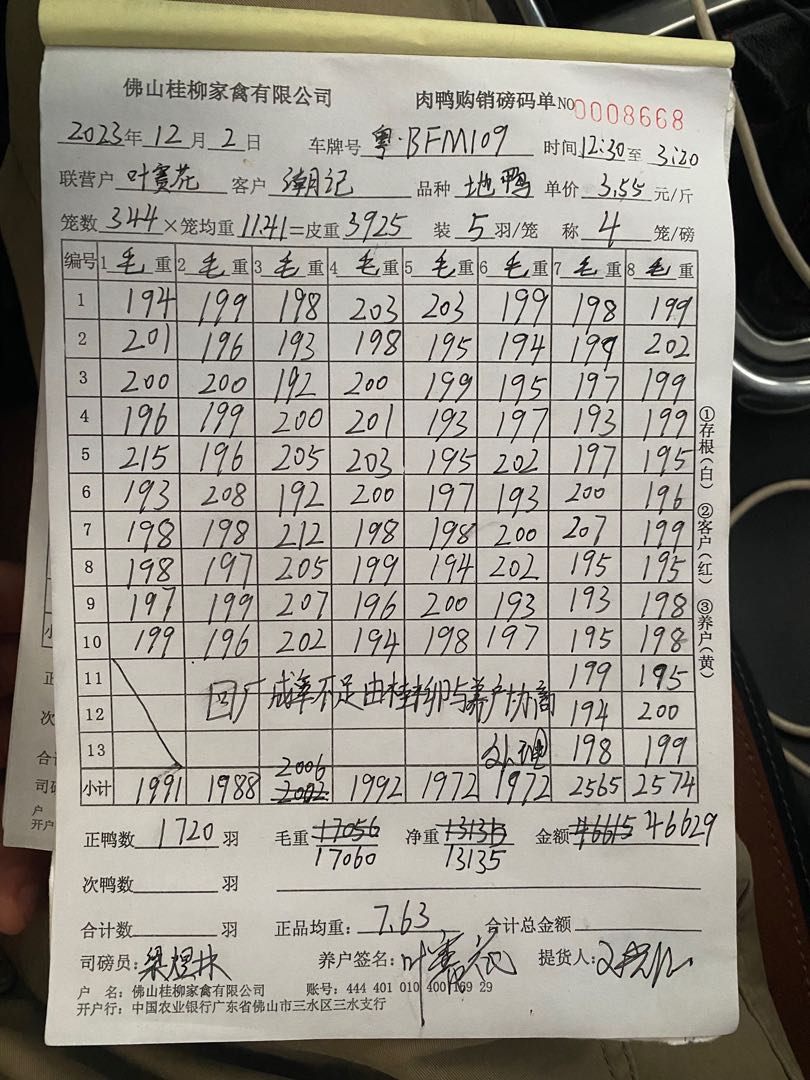 佛山桂柳家禽有限公司 肉鸭购销磅码单 NO 0008668
2023年 12 月 2 日 车牌号 粤·BFM109 时间 12:30 至 3:20
联营户 叶赛花 客户 潮记 品种 地鸭 单价 3.55 元/斤
笼数 344 ×笼均重 11.41 =皮重 3925 装 5 羽/笼 称 4 笼/磅
编号 1 毛 重 2 毛 重 3 毛 重 4 毛 重 5 毛 重 6 毛 重 7 毛 重 8 毛 重
1 194 199 198 203 203 199 198 199
2 201 196 193 198 195 194 199 202
3 200 200 192 200 199 195 197 199
4 196 199 200 201 193 197 193 199
5 215 196 205 203 195 202 197 195
6 193 208 192 200 197 193 200 196
7 198 198 212 198 198 200 207 199
8 198 197 205 199 194 202 195 195
9 197 199 207 196 200 193 193 198
10 199 196 202 194 198 197 195 198
11 199 195
回厂成率不足由桂柳与养户协商
12 194 200
13 处理 198 199
2006
小计 1991 1988 2002 1992 1972 1972 2565 2574
正鸭数 1720 羽 毛重 17056 净重 13135 金额 46615 46629
17060 13135
次鸭数 羽
合计数 羽 正品均重: 7.63 合计总金额
司磅员: 梁煜林 养户签名: 叶赛花 提货人:
户 名: 佛山桂柳家禽有限公司 账号: 444 401 010 400 169 29
开户行: 中国农业银行广东省佛山市三水区三水支行
①存根(白) ②客户(红) ③养户(黄)